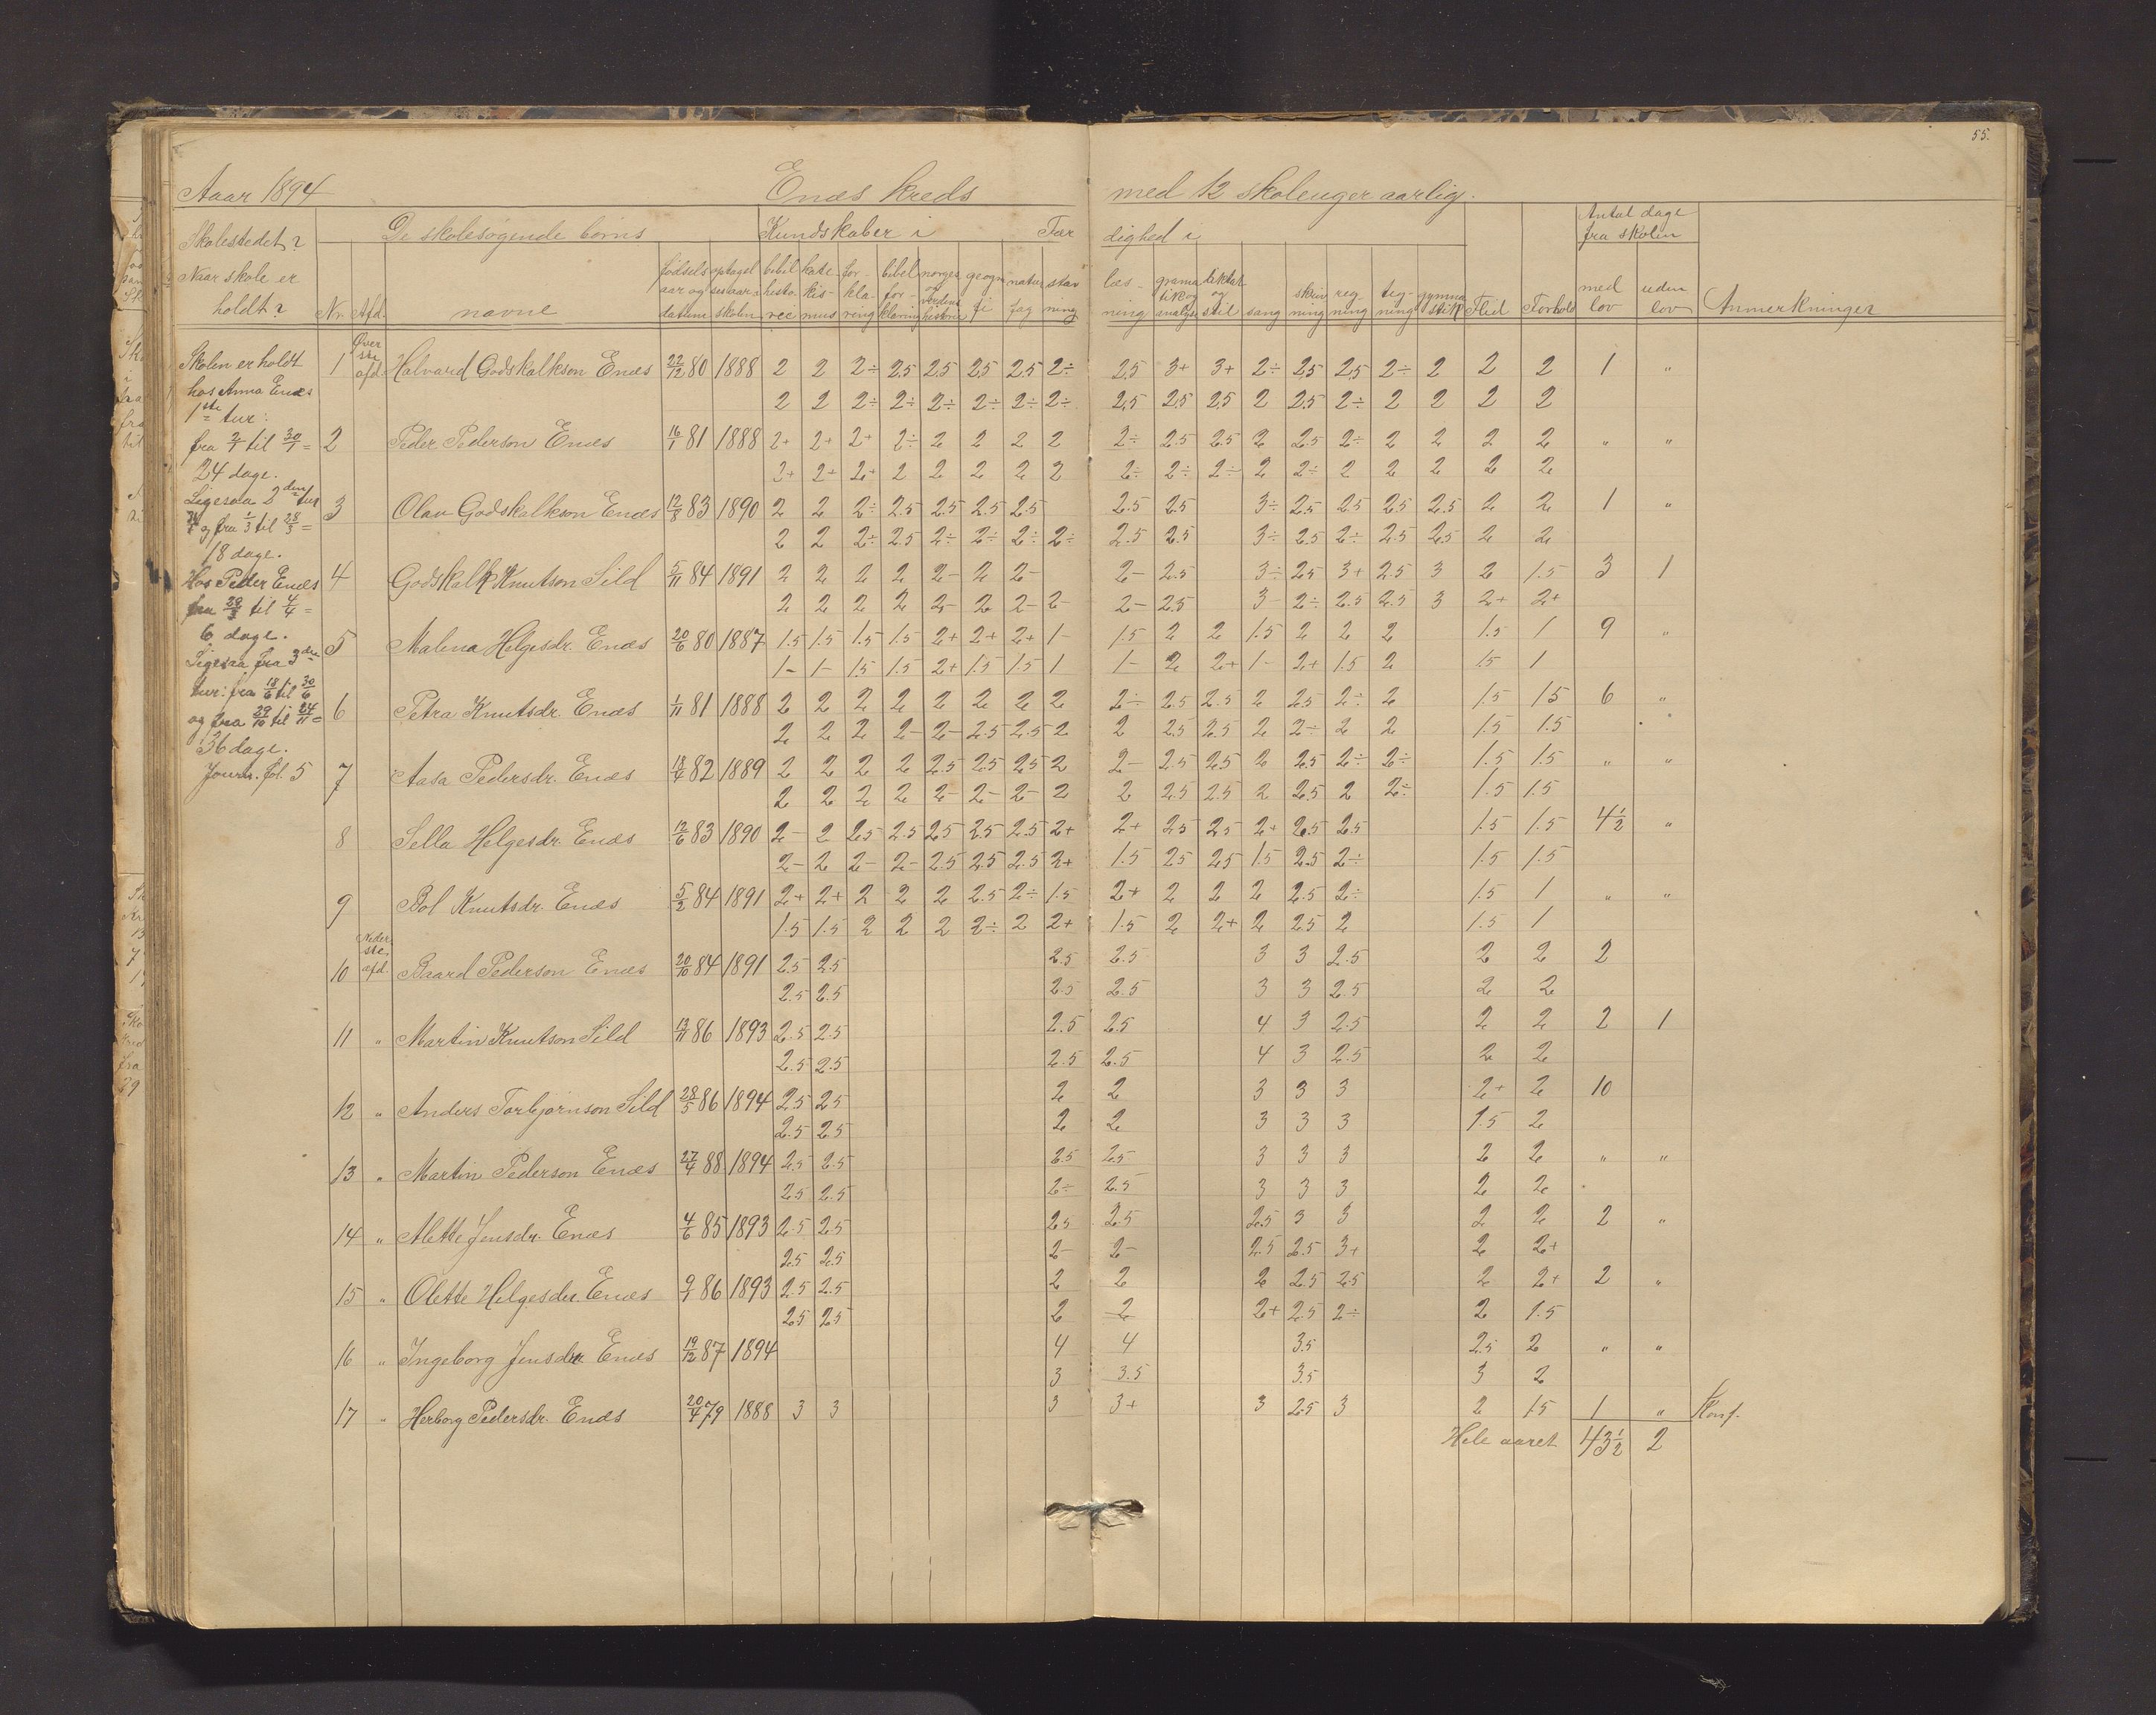 55.
Aaar 1894 Enæs kreds med 12 skoleuger aarlig.
Skolestedet? De skolesøgende børns Kundskaber i Fær dighed i Antal dage fra skolen
Naar skole er holdt? Nr. Afd. navne fødsels aar og datum optagel sesaar i skolen bibel histo rie kate kis mus for kla ring bibel for klaring norges og verdens historie geogra fi natur fag stav ning læs ning grama tik og analyse diktat og stil sang skriv ning reg ning teg ning gymna stik Flid Forhold med lov uden lov Anmerkninger
Skolen er holdt
hos Anna Enæs
1ste tur:
fra 2/1 til 30/1 =
24 dage.
Ligesaa 2den tur
og fra 1/3 til 28/3 =
18 dage.
Hos Peder Enæs
fra 29/3 til 4/4 =
6 dage.
Ligesaa fra 3die
tur: fra 18/6 til 30/6
og fra 29/10 til 24/11 =
36 dage.
Journ. fol. 5
1 Øver ste afd. Halvard Godskalkson Enæs 22/12 80 1888 2 2 2÷ 2.5 2.5 2.5 2.5 2÷ 2.5 3+ 3+ 2÷ 2.5 2.5 2÷ 2 2 2 1 "
2 2 2÷ 2÷ 2÷ 2÷ 2÷ 2÷ 2.5 2.5 2.5 2 2.5 2÷ 2 2 2 2
2 Peder Pederson Enæs 16/1 81 1888 2+ 2+ 2+ 2÷ 2 2 2 2 2÷ 2.5 2.5 2 2.5 2÷ 2 2 2 2 " "
2+ 2+ 2+ 2 2 2 2 2 2÷ 2÷ 2÷ 2 2÷ 2 2 2 2 2
3 Olav Godskalkson Enæs 12/8 83 1890 2 2 2÷ 2.5 2.5 2.5 2.5 2.5 2.5 3÷ 2.5 2.5 2.5 2.5 2 2 1 "
2 2 2÷ 2.5 2÷ 2÷ 2÷ 2÷ 2.5 2.5 3÷ 2.5 2÷ 2.5 2.5 2 2
4 Godskalk Knutson Sild 5/11 84 1891 2 2 2 2 2- 2 2- 2- 2.5 3÷ 2.5 3+ 2.5 3 2 1.5 3 1
2 2 2 2 2- 2 2- 2- 2- 2.5 3- 2÷ 2.5 2.5 3 2+ 2+
5 Malena Helgesdr. Enæs 20/6 80 1887 1.5 1.5 1.5 1.5 2+ 2+ 2+ 1- 1.5 2 2 1.5 2 2 2 1.5 1 9 "
1- 1- 1.5 1.5 2+ 1.5 1.5 1 1- 2 2+ 1- 2+ 1.5 2 1.5 1
6 Petra Knutsdr. Enæs 1/11 81 1888 2 2 2 2 2 2 2 2 2÷ 2.5 2.5 2 2.5 2÷ 2 1.5 1.5 6 "
2 2 2 2- 2- 2.5 2.5 2 2 2.5 2.5 2 2÷ 2 2 1.5 1.5
7 Aasa Pedersdr. Enæs 18/4 82 1889 2 2 2 2 2.5 2.5 2.5 2 2- 2.5 2.5 2 2.5 2÷ 2÷ 1.5 1.5 " "
2 2 2 2 2- 2- 2- 2 2 2.5 2.5 2 2.5 2 2÷ 1.5 1.5
8 Sella Helgesdr. Enæs 12/6 83 1890 2- 2 2.5 2.5 2.5 2.5 2.5 2+ 2+ 2.5 2.5 2+ 2.5 2.5 1.5 1.5 4 1/2 "
2- 2 2- 2- 2.5 2.5 2.5 2+ 1.5 2.5 2.5 1.5 2.5 2÷ 1.5 1.5
9 Bol Knutsdr. Enæs 5/2 84 1891 2+ 2+ 2 2 2 2.5 2÷ 1.5 2+ 2 2 2 2.5 2÷ 1.5 1 " "
1.5 1.5 2 2 2 2÷ 2 2+ 1.5 2 2+ 2 2.5 2 1.5 1
10 Neder ste afd. Baard Pederson Enæs 20/10 84 1891 2.5 2.5 2.5 2.5 3 3 2.5 2 2 2
2.5 2.5 2.5 2.5 3 3 2.5 2 2
11 " Martin Knutson Sild 13/11 86 1893 2.5 2.5 2.5 2.5 4 3 2.5 2 2 2 1
2.5 2.5 2.5 2.5 4 3 2.5 2 2
12 " Anders Torbjørnson Sild 28/5 86 1894 2.5 2.5 2 2 3 3 3 2+ 2 10
2.5 2.5 2 2 3 3 3 1.5 2
13 " Martin Pederson Enæs 27/4 88 1894 2.5 2.5 2.5 2.5 3 3 3 2 2 " "
2.5 2.5 2÷ 2.5 3 3 3 2 2
14 " Alette Jensdr. Enæs 4/6 85 1893 2.5 2.5 2.5 2.5 2.5 3 3 2 2 2 "
2.5 2.5 2- 2- 2.5 2.5 3+ 2 2+
15 " Olette Helgesdr. Enæs 9/1 86 1893 2.5 2.5 2 2 2 2.5 2.5 2 2+ 2 "
2.5 2.5 2 2 2+ 2.5 2÷ 2 1.5
16 " Ingeborg Jensdr. Enæs 19/12 87 1894 4 4 3.5 2.5 2 " "
3 3.5 3.5 3 2
17 " Herborg Pedersdr. Enæs 20/4 79 1888 3 3 3 3+ 3 2.5 3 2 1.5 1 " Konf.
Hele aaret 43 1/2 2